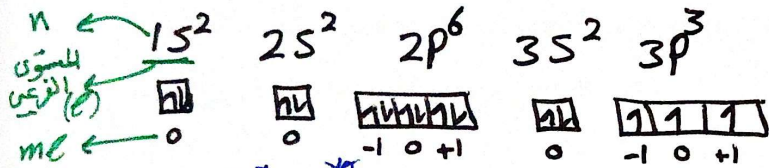 n 1S² 2S² 2P⁶ 3S² 3P³
المستوى
الفرعي
(ع)
mℓ 0 0 -1 0 +1 0 -1 0 +1